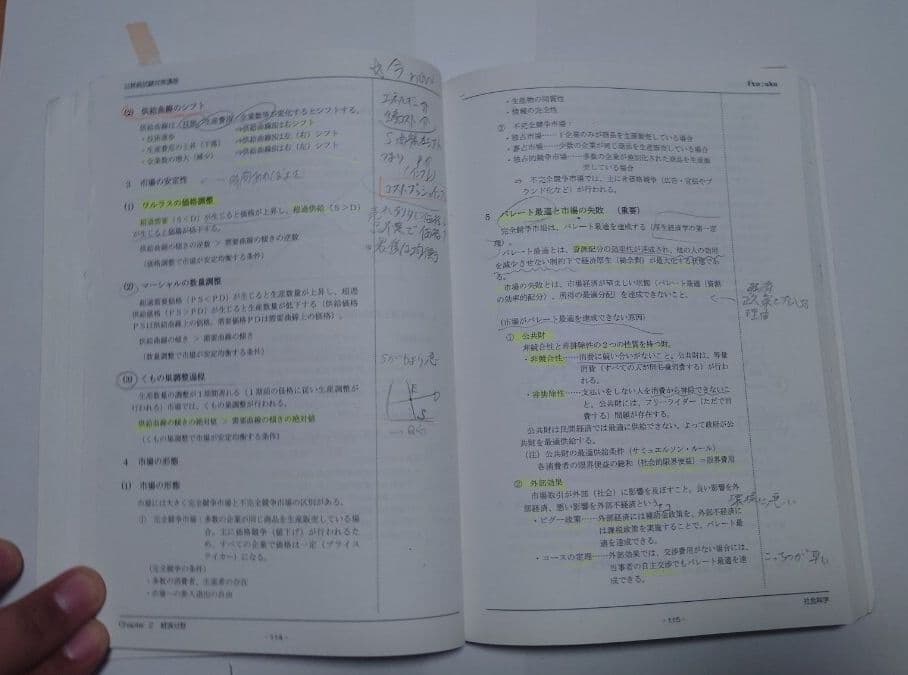 公務員試験対策講座
(2) 供給曲線のシフト
供給曲線は、技術、生産費用、企業数等が変化するとシフトする。
・技術進歩 ⇒供給曲線Sは右シフト
・生産費用の上昇（下落） ⇒供給曲線Sは左（右）シフト
・企業数の増大（減少） ⇒供給曲線Sは右（左）シフト
3 市場の安定性
(1) ワルラスの価格調整
超過需要（S＜D）が生じると価格が上昇し、超過供給（S＞D）
が生じると価格が低下する。
供給曲線の傾きの逆数 ＞ 需要曲線の傾きの逆数
（価格調整で市場が安定均衡する条件）
(2) マーシャルの数量調整
超過需要価格（PS＜PD）が生じると生産数量が上昇し、超過
供給価格（PS＞PD）が生じると生産数量が低下する（供給価格
PSは供給曲線上の価格、需要価格PDは需要曲線上の価格）。
供給曲線の傾き ＞ 需要曲線の傾き
（数量調整で市場が安定均衡する条件）
(3) くもの巣調整過程
生産数量の調整が1期間遅れる（1期前の価格に従い生産調整が
行われる）市場では、くもの巣調整が行われる。
供給曲線の傾きの絶対値 ＞ 需要曲線の傾きの絶対値
（くもの巣調整で市場が安定均衡する条件）
4 市場の形態
(1) 市場の形態
市場には大きく完全競争市場と不完全競争市場の区別がある。
① 完全競争市場：多数の企業が同じ商品を生産販売している場
合。主に価格競争（値下げ）が行われるた
め、すべての企業で価格は一定（プライス
テイカー）になる。
（完全競争の条件）
・多数の消費者、生産者の存在
・市場への参入退出の自由
Chapter 2 経済分野
-114-
コストプッシュ
・生産物の同質性
・情報の完全性
② 不完全競争市場：
・独占市場……1企業のみが商品を生産販売している場合
・寡占市場……少数の企業が同じ商品を生産販売している場合
・独占的競争市場…多数の企業が差別化された商品を生産販
売している場合
⇒ 不完全競争市場では、主に非価格競争（広告・宣伝やブ
ランド化など）が行われる。
5 パレート最適と市場の失敗 （重要）
完全競争市場は、パレート最適を達成する（厚生経済学の第一定
理）。
パレート最適とは、資源配分の効率性が達成され、他の人の効用
を減少させない制約下で経済厚生（総余剰）が最大化する状態であ
る。
市場の失敗とは、市場経済が望ましい状態（パレート最適（資源
の効率的配分）、所得の最適分配）を達成できないこと。
（市場がパレート最適を達成できない原因）
① 公共財
非競合性と非排除性の2つの性質を持つ財。
・非競合性……消費に競い合いがないこと。公共財は、等量
消費（すべての人が同じ量消費する）が行わ
れる。
・非排除性……支払いをしない人を消費から排除できないこ
と。公共財には、フリーライダー（ただで消
費する）問題が存在する。
公共財は民間経済では最適に供給できない。よって政府が公
共財を最適供給する。
（注）公共財の最適供給条件（サミュエルソン・ルール）
各消費者の限界便益の総和（社会的限界便益）＝限界費用
② 外部効果
市場取引が外部（社会）に影響を及ぼすこと。良い影響を外
部経済、悪い影響を外部不経済という。
・ピグー政策……外部経済には補助金政策を、外部不経済に
は課税政策を実施することで、パレート最
適を達成できる。
・コースの定理……外部効果では、交渉費用がない場合には、
当事者の自主交渉でもパレート最適を達
成できる。
理由
社会科学
-115-